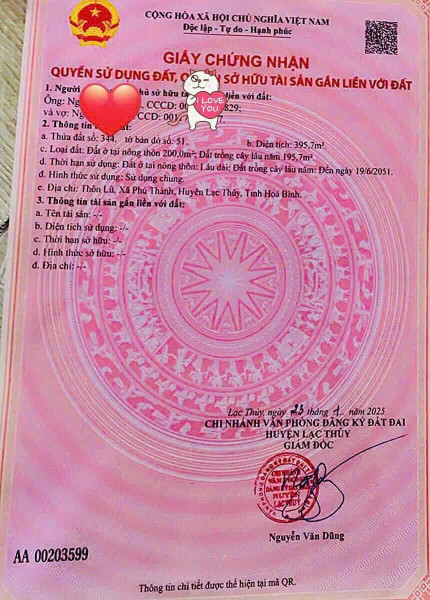 CỘNG HÒA XÃ HỘI CHỦ NGHĨA VIỆT NAM
Độc lập - Tự do - Hạnh phúc
GIẤY CHỨNG NHẬN
QUYỀN SỬ DỤNG ĐẤT, SỞ HỮU TÀI SẢN GẮN LIỀN VỚI ĐẤT
1. Người chủ sở hữu liền với đất:
Ông: CCCD: 829;
và vợ: CCCD:
I LOVE YOU
2. Thông tin
a. Thửa đất số: 344, tờ bản đồ số: 51. b. Diện tích: 395,7m².
c. Loại đất: Đất ở tại nông thôn 200,0m²; Đất trồng cây lâu năm 195,7m².
d. Thời hạn sử dụng: Đất ở tại nông thôn: Lâu dài; Đất trồng cây lâu năm: Đến ngày 19/6/2051.
đ. Hình thức sử dụng: Sử dụng chung.
e. Địa chỉ: Thôn Lũ, Xã Phú Thành, Huyện Lạc Thủy, Tỉnh Hoà Bình.
3. Thông tin tài sản gắn liền với đất:
a. Tên tài sản: -/-
b. Diện tích sử dụng: -/-
c. Thời hạn sở hữu: -/-
d. Hình thức sở hữu: -/-
đ. Địa chỉ: -/-
Lạc Thủy, ngày 23 tháng 1 năm 2025
CHI NHÁNH VĂN PHÒNG ĐĂNG KÝ ĐẤT ĐAI
HUYỆN LẠC THỦY
GIÁM ĐỐC
CHI NHÁNH
VĂN PHÒNG
ĐĂNG KÝ ĐẤT ĐAI
HUYỆN
LẠC THỦY
Nguyễn Văn Dũng
AA 00203599
Thông tin chi tiết được thể hiện tại mã QR.